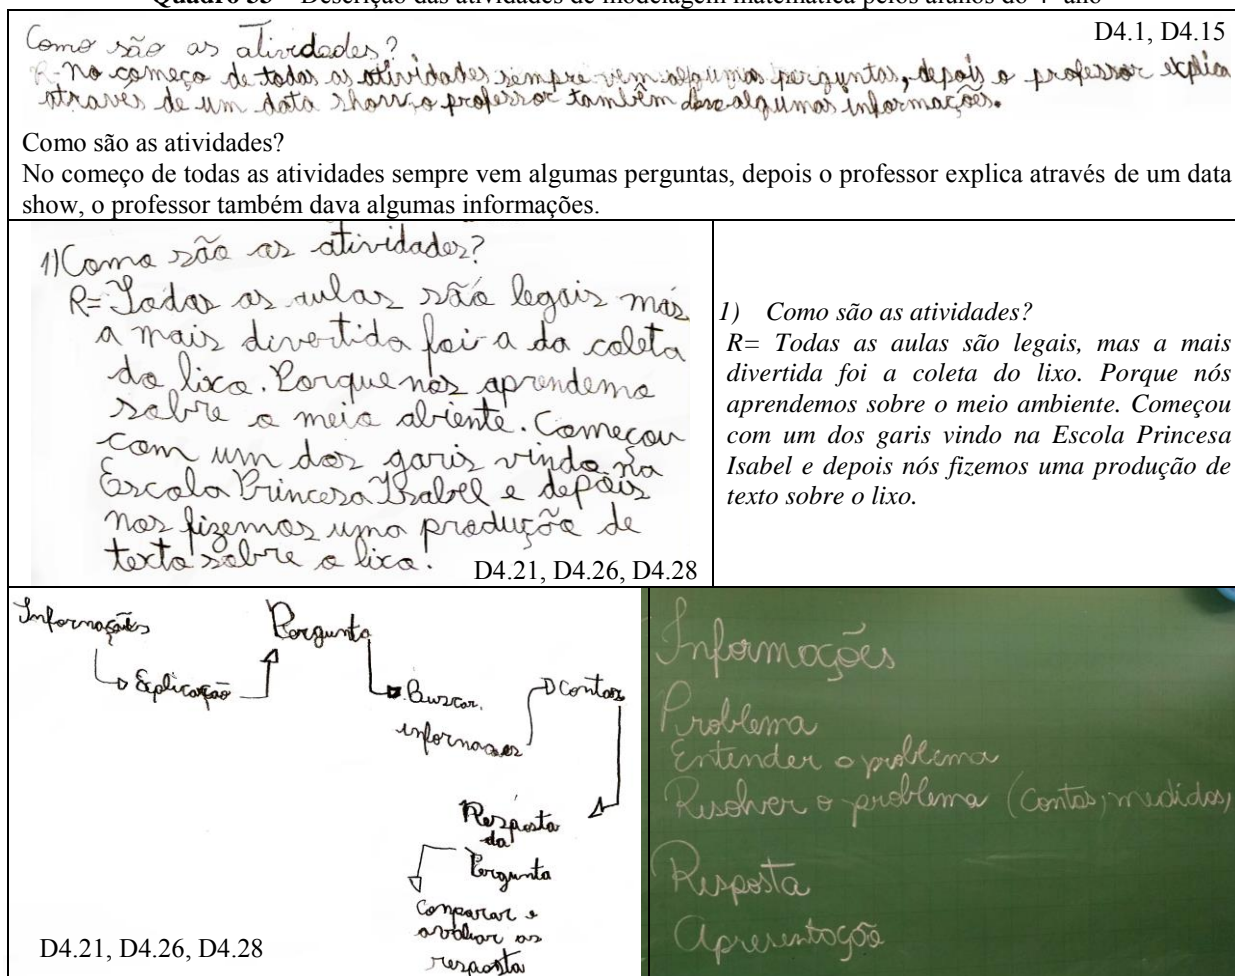 Quadro 33 – Descrição das atividades de modelagem matemática pelos alunos do 4º ano
D4.1, D4.15
Como são as atividades?
R- No começo de todas as atividades sempre vem algumas perguntas, depois o professor explica
através de um data show, o professor também dava algumas informações.
Como são as atividades?
No começo de todas as atividades sempre vem algumas perguntas, depois o professor explica através de um data
show, o professor também dava algumas informações.
1) Como são as atividades?
R= Todas as aulas são legais mas
a mais divertida foi a da coleta
do lixo. Porque nós aprendemo
sobre o meio abiente. Começou
com um dos garis vindo na
Escola Princesa Isabel e depois
nos fizemos uma produção de
texto sobre o lixo.
D4.21, D4.26, D4.28
1) Como são as atividades?
R= Todas as aulas são legais, mas a mais
divertida foi a coleta do lixo. Porque nós
aprendemos sobre o meio ambiente. Começou
com um dos garis vindo na Escola Princesa
Isabel e depois nós fizemos uma produção de
texto sobre o lixo.
Informações
Explicação
Pergunta
Buscar
informações
Contas
Resposta
da
Pergunta
Comparar e
avaliar as
resposta
D4.21, D4.26, D4.28
Informações
Problema
Entender o problema
Resolver o problema (Contas, medidas,
Resposta
Apresentação